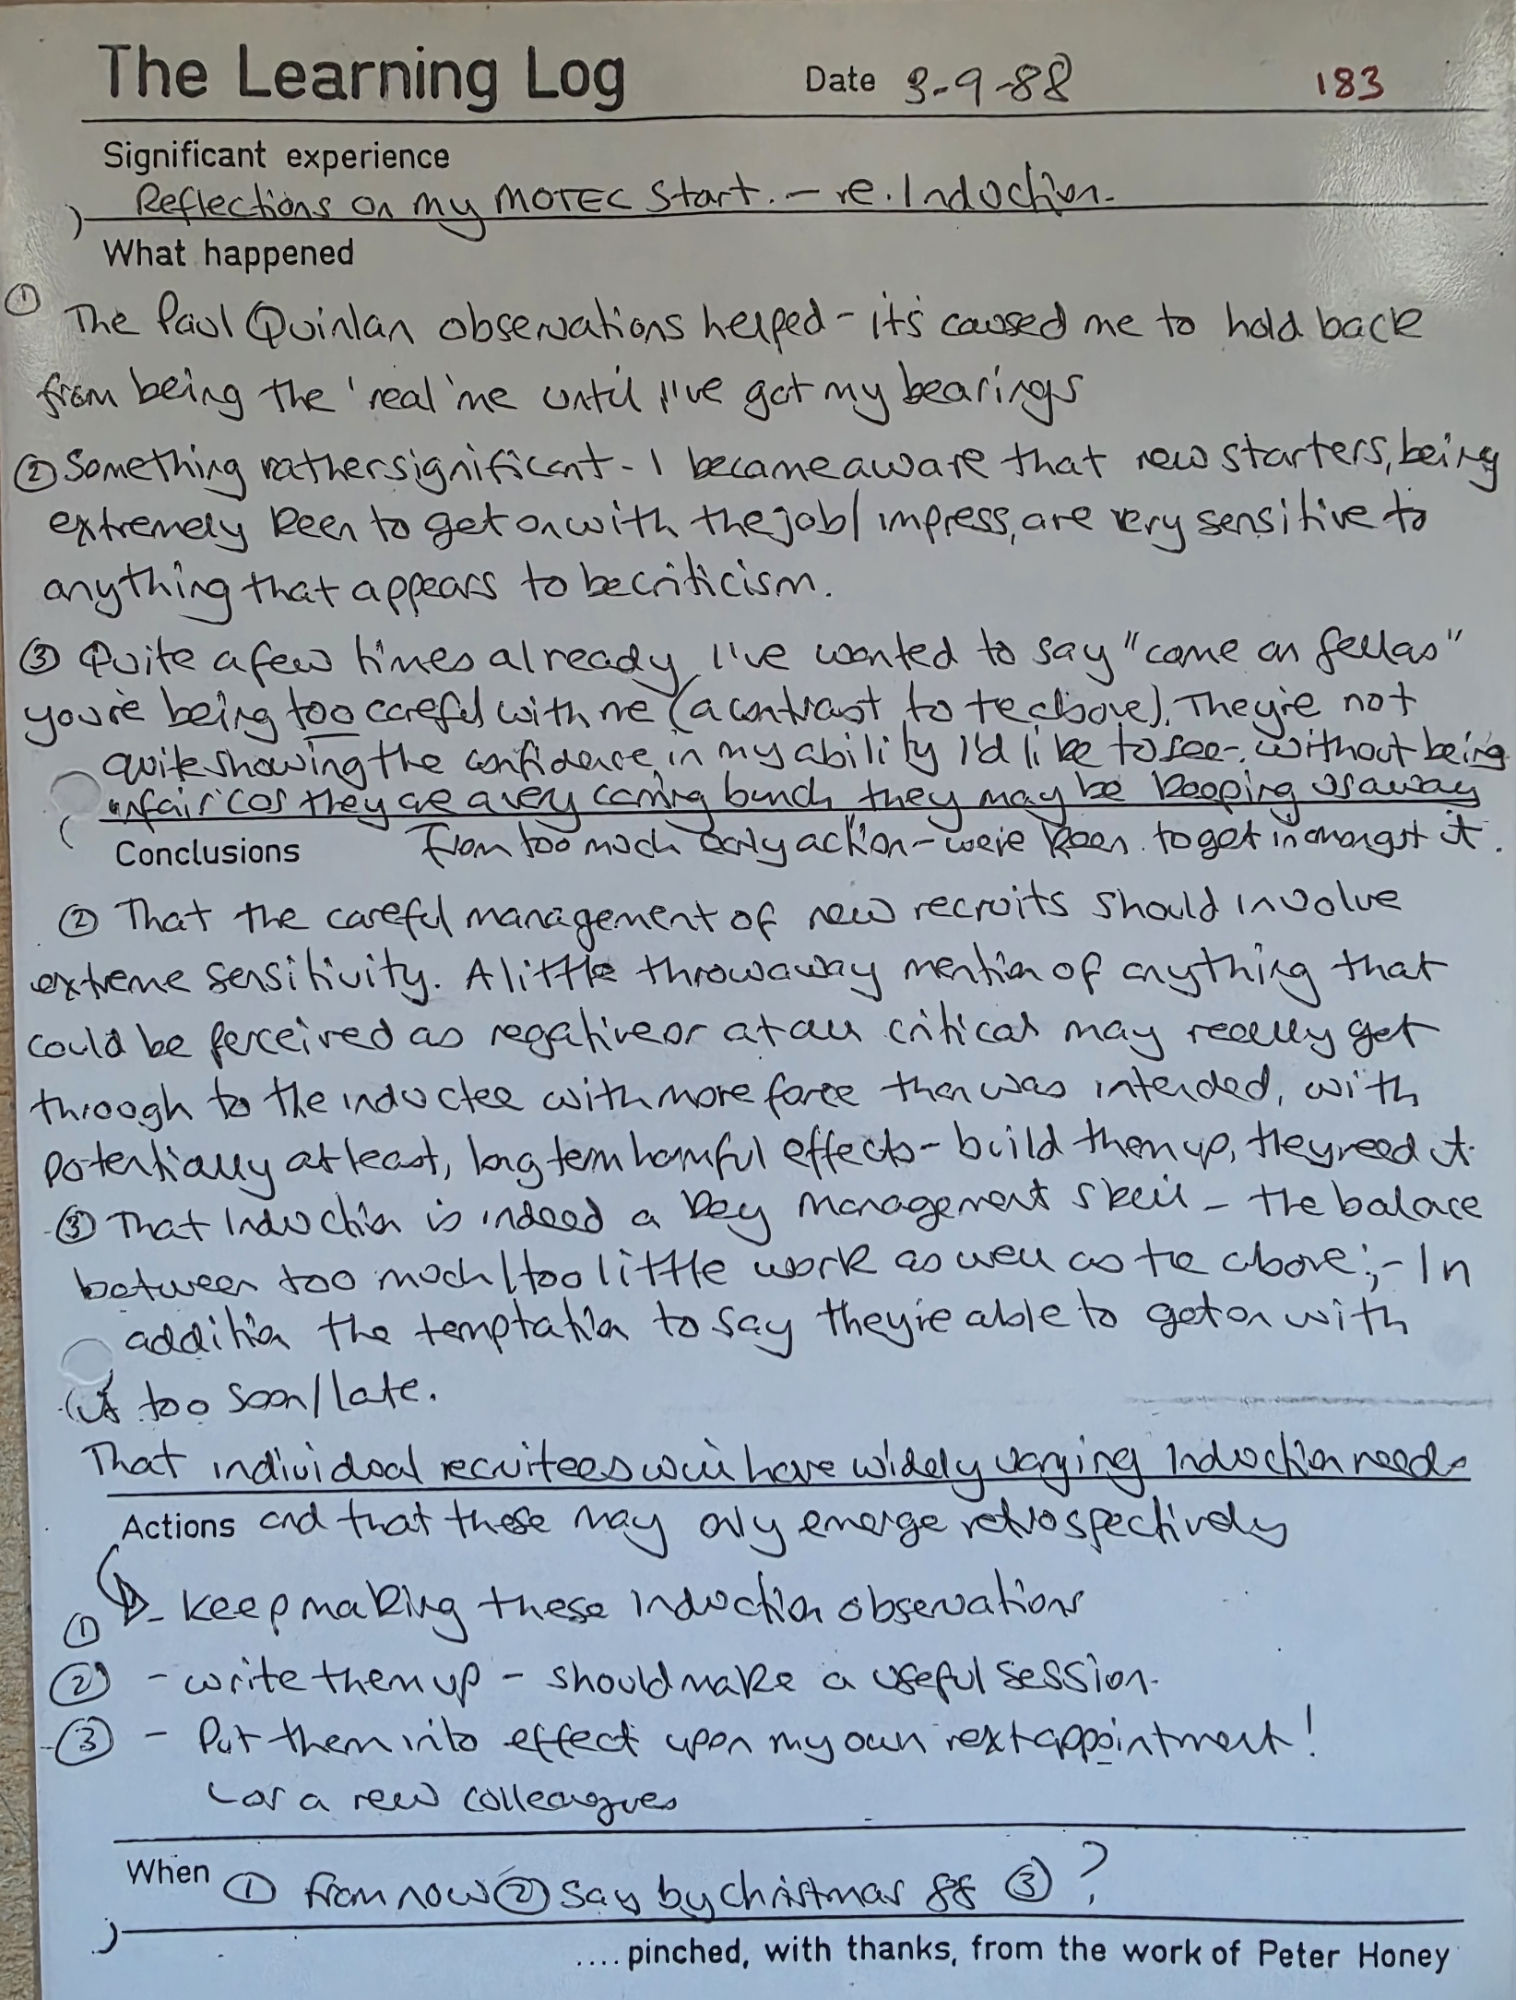 The Learning Log Date 3-9-88 183
Significant experience
Reflections on my MOTEC start. - re. Induction.
What happened
① The Paul Quinlan observations helped - it's caused me to hold back
from being the 'real' me until I've got my bearings
② Something rather significant - I became aware that new starters, being
extremely keen to get on with the job/impress, are very sensitive to
anything that appears to be criticism.
③ Quite a few times already I've wanted to say "come on fellas"
you're being too careful with me (a contrast to te above). They're not
quite showing the confidence in my ability I'd like to see - without being
unfair 'cos they are a very caring bunch they may be keeping us away
from too much early action - we're keen to get in amongst it.
Conclusions
② That the careful management of new recruits should involve
extreme sensitivity. A little throwaway mention of anything that
could be perceived as negative or at all critical may really get
through to the inductee with more force than was intended, with
potentially at least, long term harmful effects - build them up, they need it.
③ That Induction is indeed a key management skill - the balace
between too much/too little work as well as te above; - In
addition the temptation to say they're able to get on with
it too soon/late.
That individual recruitees will have widely varying Induction needs
Actions and that these may only emerge retrospectively
① - keep making these induction observations
② - write them up - should make a useful session.
③ - Put them into effect upon my own next appointment!
or a new colleagues
When ① from now ② say by christmas 88 ③ ?
.... pinched, with thanks, from the work of Peter Honey